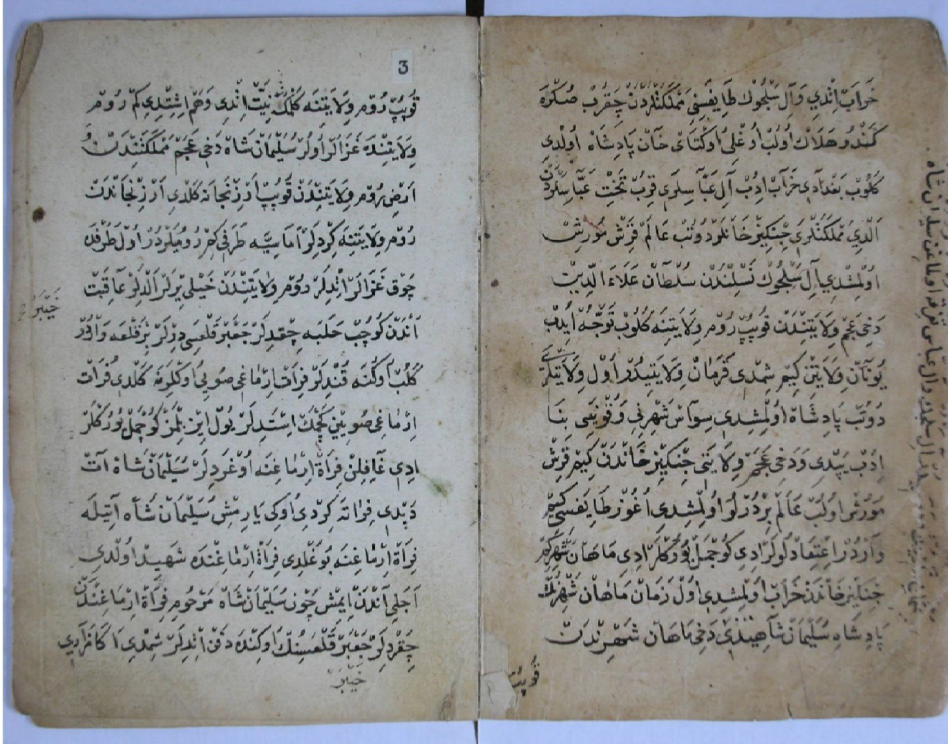 خراب اتدي وآل سلجوك طايفسي مملكتلردن چقرب صكره
كندو هلاك اولب اوغلي اوكتاي خان پادشاه اولدي
كلوب بغدادي خراب ادب آل عباسلري قرب تخت عباسلردن
الدي مملكتلري جنكيز خانلو دوتب عالم قرش مورش
اولمشدي آل سلجوك نسلندن سلطان علاء الدين
دخي عجم ولايتندن قوپب روم ولايتنه كلوب توجه ايدب
يونان ولايتن كيم شمدي قرمان ولايتيدر اول ولايتلري
دوتب پادشاه اولمشدي سواس شهرني وقونيي بنا
ادب يپدي ودخي عجم ولايتي جنكيز خاندن كيم قرش
مورش اولب عالم بر درلو اولمشدي اغوز طايفسي كيم
واردر اعتقادلولر ادي كوچمل يوركلر ادي ماهان شهري كم
جنكيز خاندن خراب اولمشدي اول زمان ماهان شهرنك
پادشاه سليمان شاهيندي دخي ماهان شهرندن
قوپب
3
قوپب روم ولايتنه كلمك نيت اتدي وهم اشتدي كم روم
ولايتنده غزالر اولر سليمان شاه دخي عجم مملكتندن
ارض روم ولايتندن قوپب ارزنجانه كلدي ارزنجاندن
روم ولايتنه كردلر اماسيه طرفي كم روميلردر اول طرفده
چوق غزالر اتدلر روم ولايتندن خيلي يرلر الدلر عاقبت
اندن كوچب حلبه چقدلر جعبر قلعسي درلر بر قلعه واردر
كلب اوكنه قندلر فرات ارماغي صويي اوكلرنه كلدي فرات
ارماغي صوين كچمك استدلر يول ايز بلمز كوچمل يوركلر
ادي غافلن فراة ارماغنه اوغردلر سليمان شاه آت
دپدي فراته كردي اوكي يارمش سليمان شاه آتيله
فراة ارماغنه بوغلدي فراة ارماغنده شهيد اولدي
اجلي اندن ايمش چون سليمان شاه مرحوم فراة ارماغندن
چقردلر جعبر قلعسنك اوكنده دفن اتدلر شمدي اكا مزاري
خيبر